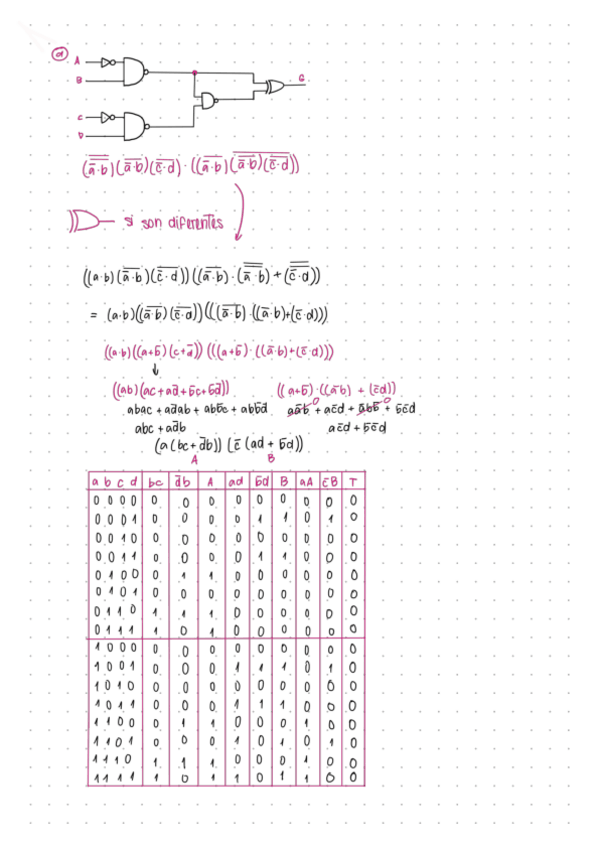 a
A
B
G
C
D
(a̅·b)(a̅·b)(c̅·d)·((a̅·b)(a̅·b)(c̅·d))
si son diferentes
((a·b)(a̅·b)(c̅·d))((a̅·b)·(a̅·b)+(c̅·d))
= (a·b)((a̅·b)(c̅·d))(((a̅·b)·((a̅·b)+(c̅·d)))
((a·b)((a+b̅)(c+d̅))(((a+b̅)·((a̅·b)+(c̅·d)))
↓
((ab)(ac+ad̅+b̅c+b̅d̅)) ((a+b̅)·((a̅b)+(c̅d))
abac + ad̅ab + abb̅c + abb̅d̅ aa̅b⁰ + ac̅d + a̅bb̅⁰ + b̅c̅d
abc + ad̅b ac̅d + b̅c̅d
(a(bc+d̅b))(c̅(ad+b̅d))
A B
a b c d bc d̅b A ad b̅d B aA c̅B T
0 0 0 0 0 0 0 0 0 0 0 0 0
0 0 0 1 0 0 0 0 1 1 0 1 0
0 0 1 0 0 0 0 0 0 0 0 0 0
0 0 1 1 0 0 0 0 1 1 0 0 0
0 1 0 0 0 1 1 0 0 0 0 0 0
0 1 0 1 0 0 0 0 0 0 0 0 0
0 1 1 0 1 1 1 0 0 0 0 0 0
0 1 1 1 1 0 1 0 0 0 0 0 0
1 0 0 0 0 0 0 0 0 0 0 0 0
1 0 0 1 0 0 0 1 1 1 0 1 0
1 0 1 0 0 0 0 0 0 0 0 0 0
1 0 1 1 0 0 0 1 1 1 0 0 0
1 1 0 0 0 1 1 0 0 0 1 0 0
1 1 0 1 0 0 0 1 0 1 0 1 0
1 1 1 0 1 1 1 0 0 0 1 0 0
1 1 1 1 1 0 1 1 0 1 1 0 0